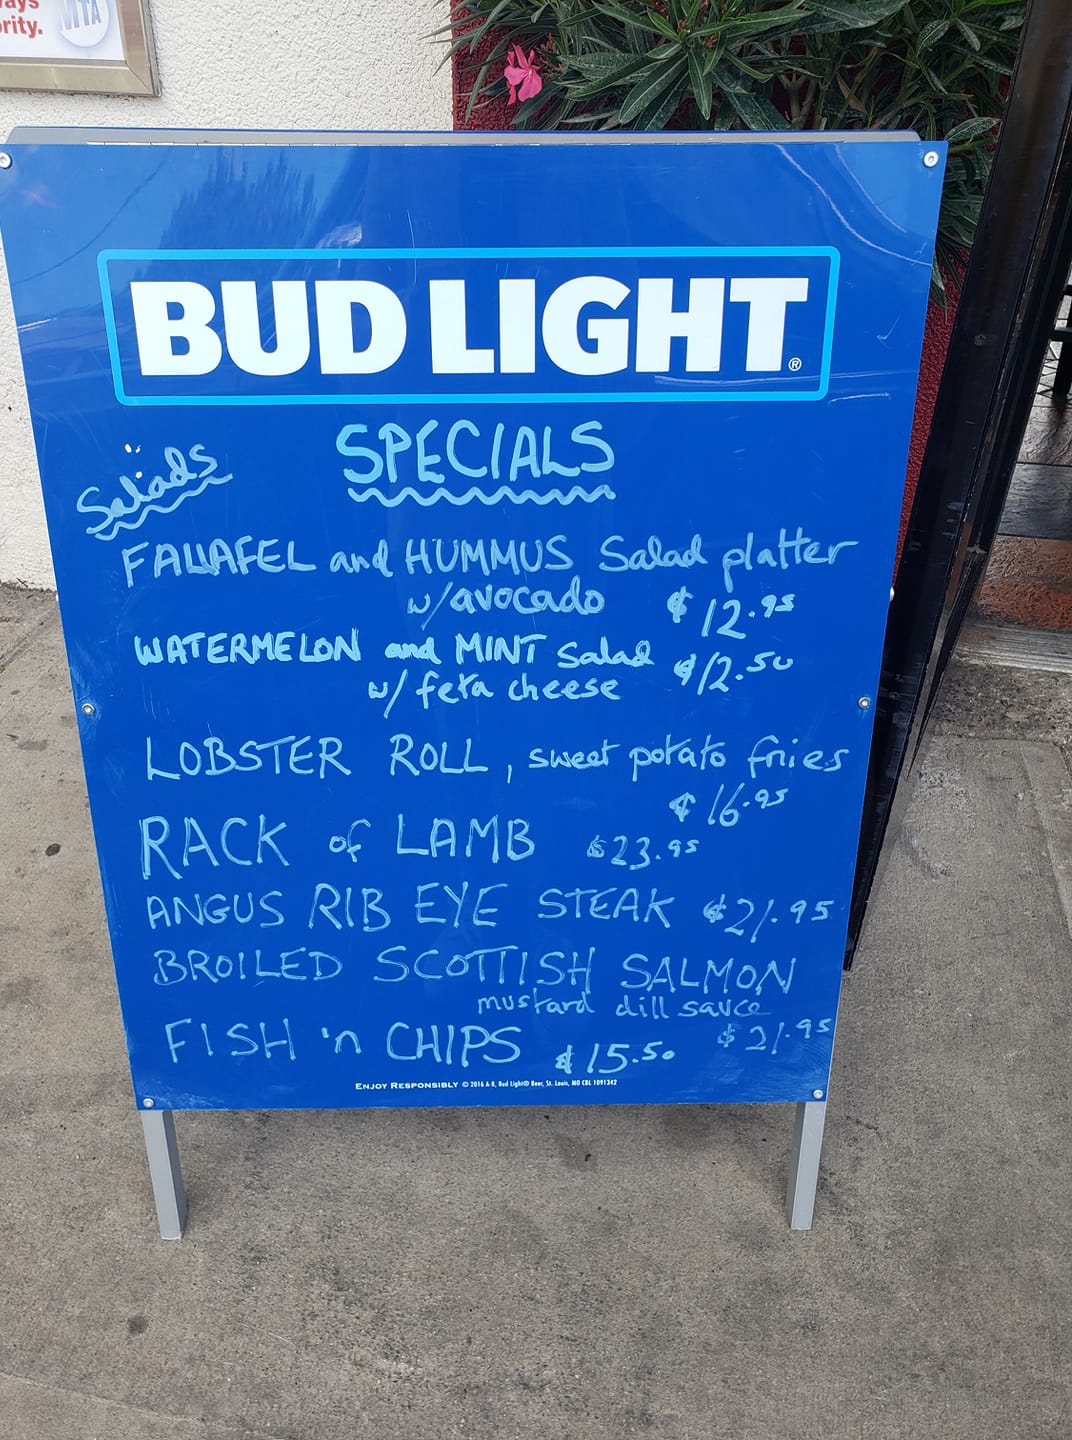 ways
ority.
MTA
BUD LIGHT®
SPECIALS
Salads
FALLAFEL and HUMMUS Salad platter
w/avocado $12.95
WATERMELON and MINT Salad $12.50
w/ feta cheese
LOBSTER ROLL, sweet potato fries
$16.95
RACK of LAMB $23.95
ANGUS RIB EYE STEAK $21.95
BROILED SCOTTISH SALMON
mustard dill sauce
$21.95
FISH 'n CHIPS $15.50
ENJOY RESPONSIBLY © 2016 A-B, Bud Light® Beer, St. Louis, MO CBL 1091342